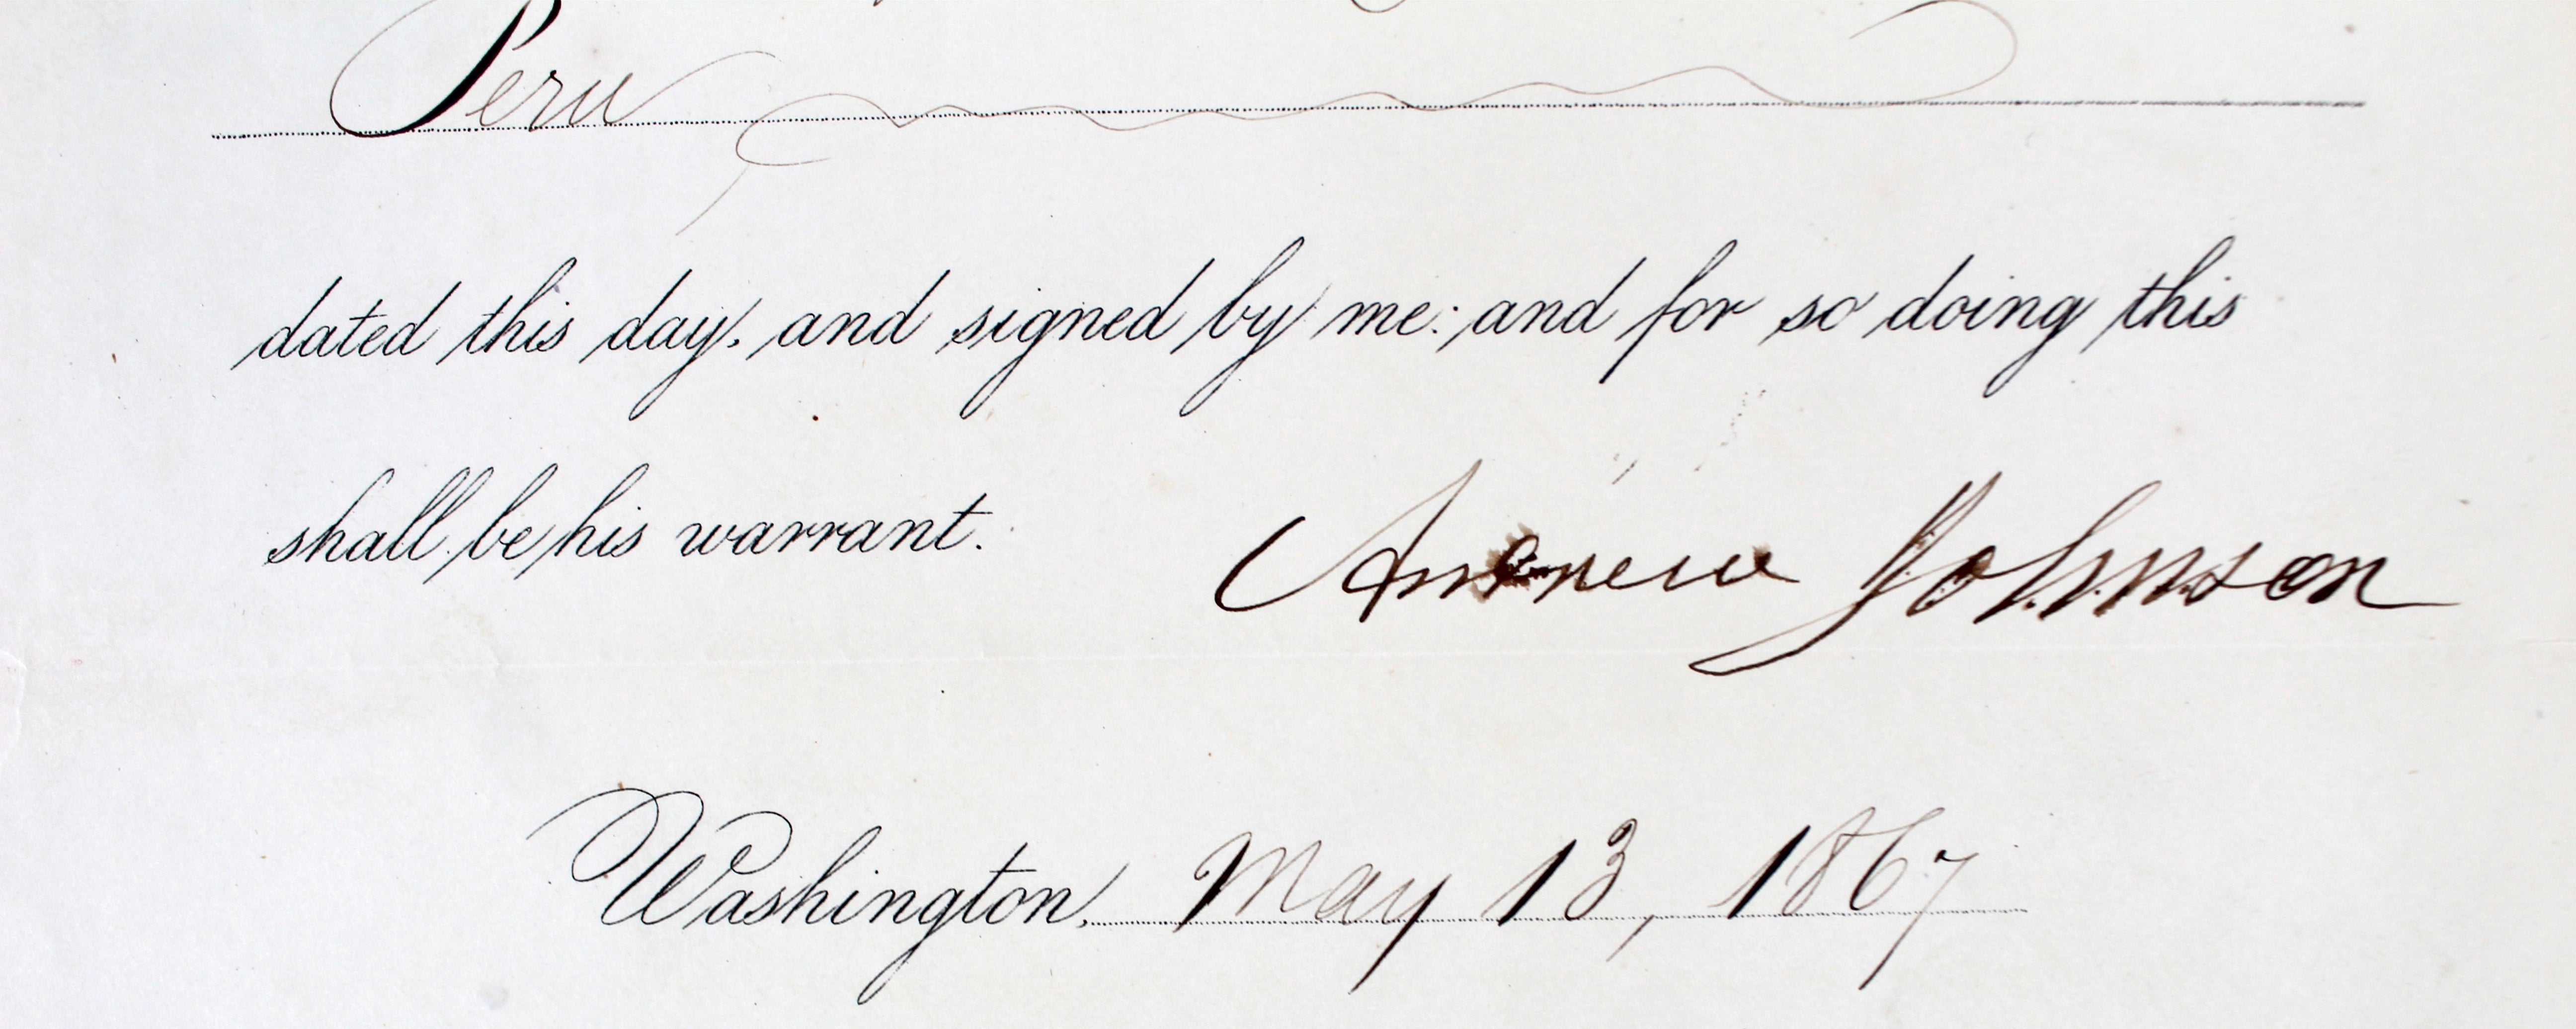 Peru
dated this day, and signed by me: and for so doing this
shall be his warrant.
Andrew Johnson
Washington, May 13, 1867